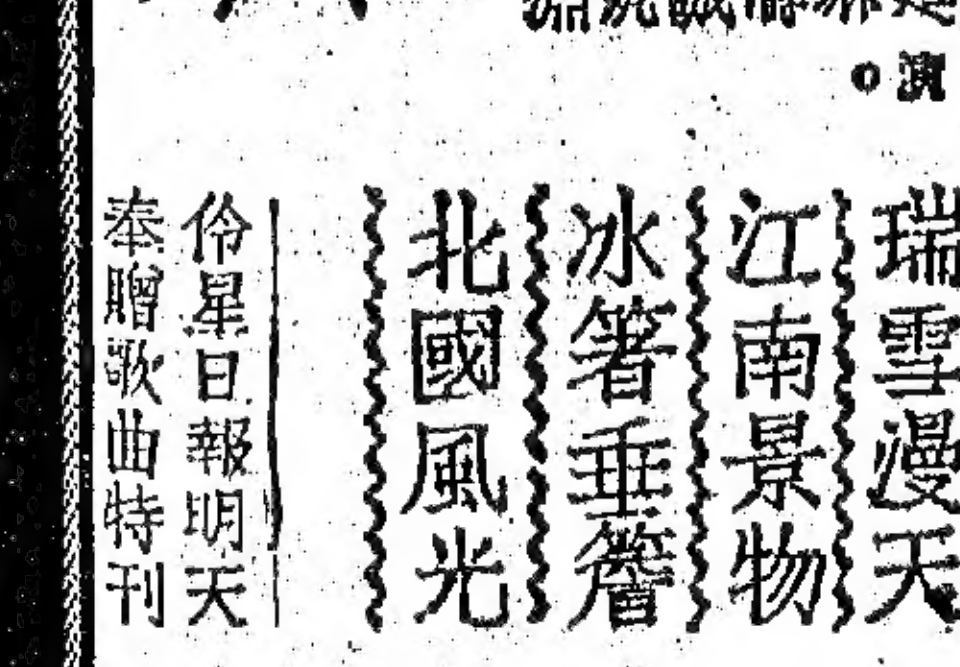 演。
瑞雪漫天
江南景物
冰箸垂簷
北國風光
伶星日報明天
奉贈歌曲特刊